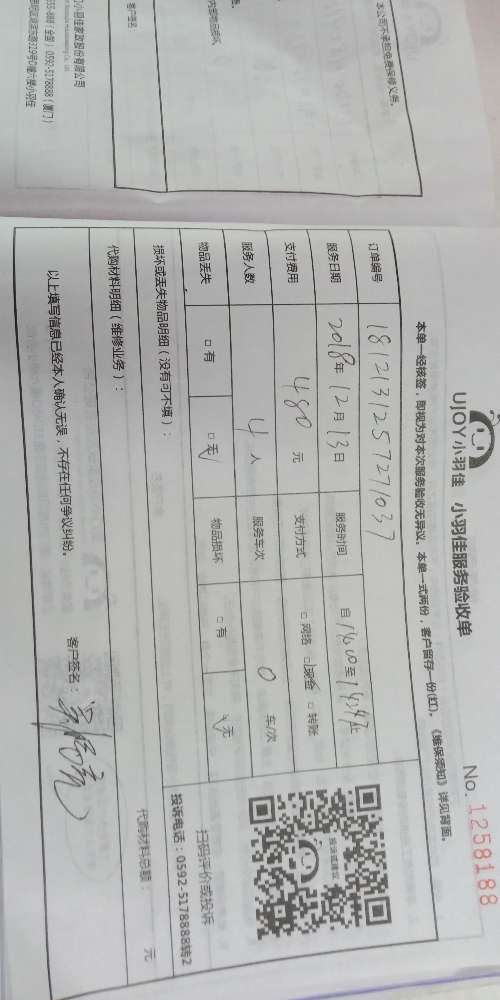 本公司不承担免费保修义务。
客户签名
555-888（全国）0592-5178888（厦门）
UJOY小羽佳 小羽佳服务验收单
No. 1258188
本单一经核签，即视为对本次服务验收无异议。本单一式两份，客户留存一份(红)。《维保须知》详见背面。
订单编号 1812131257271037
服务日期 2018年12月13日 服务时间 自14:00至14:34止
支付费用 480元 支付方式 □网络 □现金 □转账
服务人数 4人 服务车次 0车/次
物品丢失 □有 □无 物品损坏 □有 □无
扫码评价或投诉
投诉电话：0592-5178888转2
损坏或丢失物品明细（没有可不填）：
代购材料明细（维修业务）： 代购材料总额： 元
以上填写信息已经本人确认无误，不存在任何争议纠纷。
客户签名：